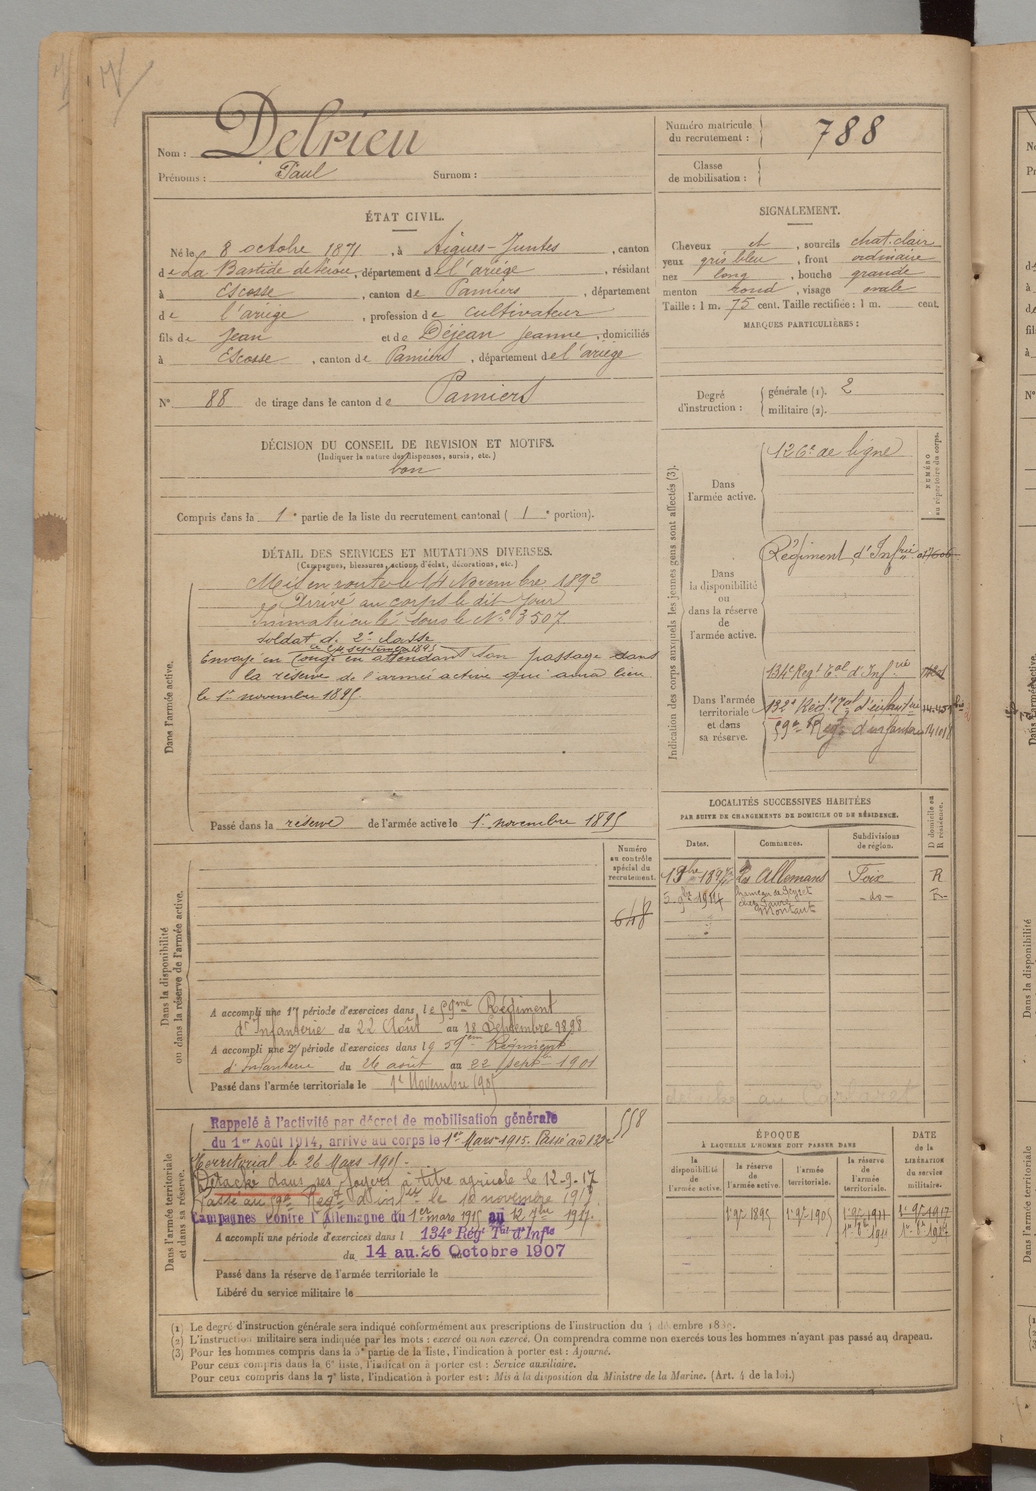 Nom : Delrieu
Prénoms : Paul Surnom :
Numéro matricule du recrutement : 788
Classe de mobilisation :
ÉTAT CIVIL.
Né le 8 octobre 1871, à Aigues-Juntes, canton
de La Bastide de Sérou, département de l'ariége, résidant
à Escosse, canton de Pamiers, département
de l'ariége, profession de cultivateur
fils de Jean et de Déjean Jeanne, domiciliés
à Escosse, canton de Pamiers, département de l'ariége
N° 88 de tirage dans le canton de Pamiers
SIGNALEMENT.
Cheveux et, sourcils chat. clair
yeux gris bleu, front ordinaire
nez long, bouche grande
menton rond, visage ovale
Taille : 1 m. 75 cent. Taille rectifiée : 1 m. cent.
MARQUES PARTICULIÈRES :
Degré d'instruction : générale (1). 2
militaire (2).
DÉCISION DU CONSEIL DE REVISION ET MOTIFS.
(Indiquer la nature des dispenses, sursis, etc.)
bon
Compris dans la 1e partie de la liste du recrutement cantonal ( 1e portion).
DÉTAIL DES SERVICES ET MUTATIONS DIVERSES.
(Campagnes, blessures, actions d'éclat, décorations, etc.)
Dans l'armée active.
Mis en route le 14 Novembre 1892
Arrivé au corps le dit jour
Immatriculé sous le N° 3507
soldat de 2e classe
le 24 septembre 1895
Envoyé en congé en attendant son passage dans
la réserve de l'armée active qui aura lieu
le 1er novembre 1895
Passé dans la réserve de l'armée active le 1er novembre 1895
Indication des corps auxquels les jeunes gens sont affectés (3).
NUMÉRO au répertoire du corps.
Dans l'armée active.
126e de ligne
Dans la disponibilité ou dans la réserve de l'armée active.
Régiment d'Infrie
Dans l'armée territoriale et dans sa réserve.
134e Regt Tal d'Infrie
132e Régt Tal d'infanterie
59e Regt d'infanterie
LOCALITÉS SUCCESSIVES HABITÉES
PAR SUITE DE CHANGEMENTS DE DOMICILE OU DE RÉSIDENCE.
Dates. Communes. Subdivisions de région. D domicile ou R résidence.
Les Allemans Foix R
Montaut -do- R
Dans la disponibilité ou dans la réserve de l'armée active.
Numéro au contrôle spécial du recrutement.
648
A accompli une 1e période d'exercices dans le 59me Régiment
d'Infanterie du 22 Août au 18 Septembre 1898
A accompli une 2e période d'exercices dans le 59em Régiment
d'Infanterie du 26 août au 22 septre 1901
Passé dans l'armée territoriale le 1er Novembre 1905
Dans l'armée territoriale et dans sa réserve.
558
Rappelé à l'activité par décret de mobilisation générale
du 1er Août 1914, arrivé au corps le 1er Mars 1915. Passé au 132e
Territorial le 26 Mars 1915.
Détaché dans ses foyers à titre agricole le 12-9-17
Passé au 59e Regt d'infrie le 10 novembre 1917
Campagnes contre l'Allemagne du 1er mars 1915 au 12 7bre 1917.
A accompli une période d'exercices dans l 134e Régt Tal d'Infie
du 14 au 26 Octobre 1907
Passé dans la réserve de l'armée territoriale le
Libéré du service militaire le
ÉPOQUE
À LAQUELLE L'HOMME DOIT PASSER DANS
la disponibilité de l'armée active.
la réserve de l'armée active.
l'armée territoriale.
la réserve de l'armée territoriale.
DATE de la LIBÉRATION du service militaire.
1er 9re 1895 1er 9re 1905 1er 9re 1911 1er 9re 1917
(1) Le degré d'instruction générale sera indiqué conformément aux prescriptions de l'instruction du décembre
(2) L'instruction militaire sera indiquée par les mots : exercé ou non exercé. On comprendra comme non exercés tous les hommes n'ayant pas passé au drapeau.
(3) Pour les hommes compris dans la 5e partie de la liste, l'indication à porter est : Ajourné.
Pour ceux compris dans la 6e liste, l'indication à porter est : Service auxiliaire.
Pour ceux compris dans la 7e liste, l'indication à porter est : Mis à la disposition du Ministre de la Marine. (Art. 4 de la loi.)